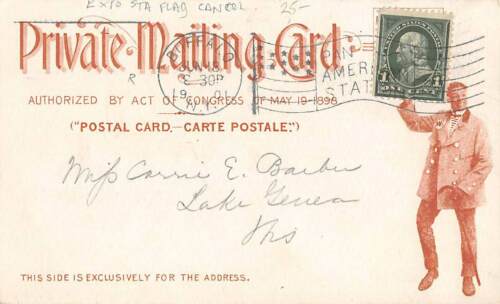 EXPO STA FLAG CANCEL 25-
Private Mailing Card
R
BUFFALO
JUN 18
8 30P
19 01
N.Y.
PAN
AMERI
STAT
1 1
ONE CENT
AUTHORIZED BY ACT OF CONGRESS OF MAY 19-1898
("POSTAL CARD.—CARTE POSTALE.")
Miss Carrie E. Barber
Lake Geneva
Wis
THIS SIDE IS EXCLUSIVELY FOR THE ADDRESS.